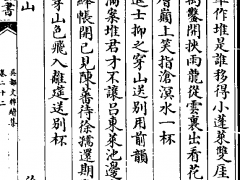 年作堆是誰移得小蓬萊雙崖
萬鑿開挾雨龍從雲裏出看花
曾巔上笑指滄溟水一杯
進士抑之穿山送別用前韻
滿案堆君才不讓呂東萊池邊
絳帳開已見陳蕃待徐孺還期
穿山色飛入離筵送別杯
山
書
卷二十二